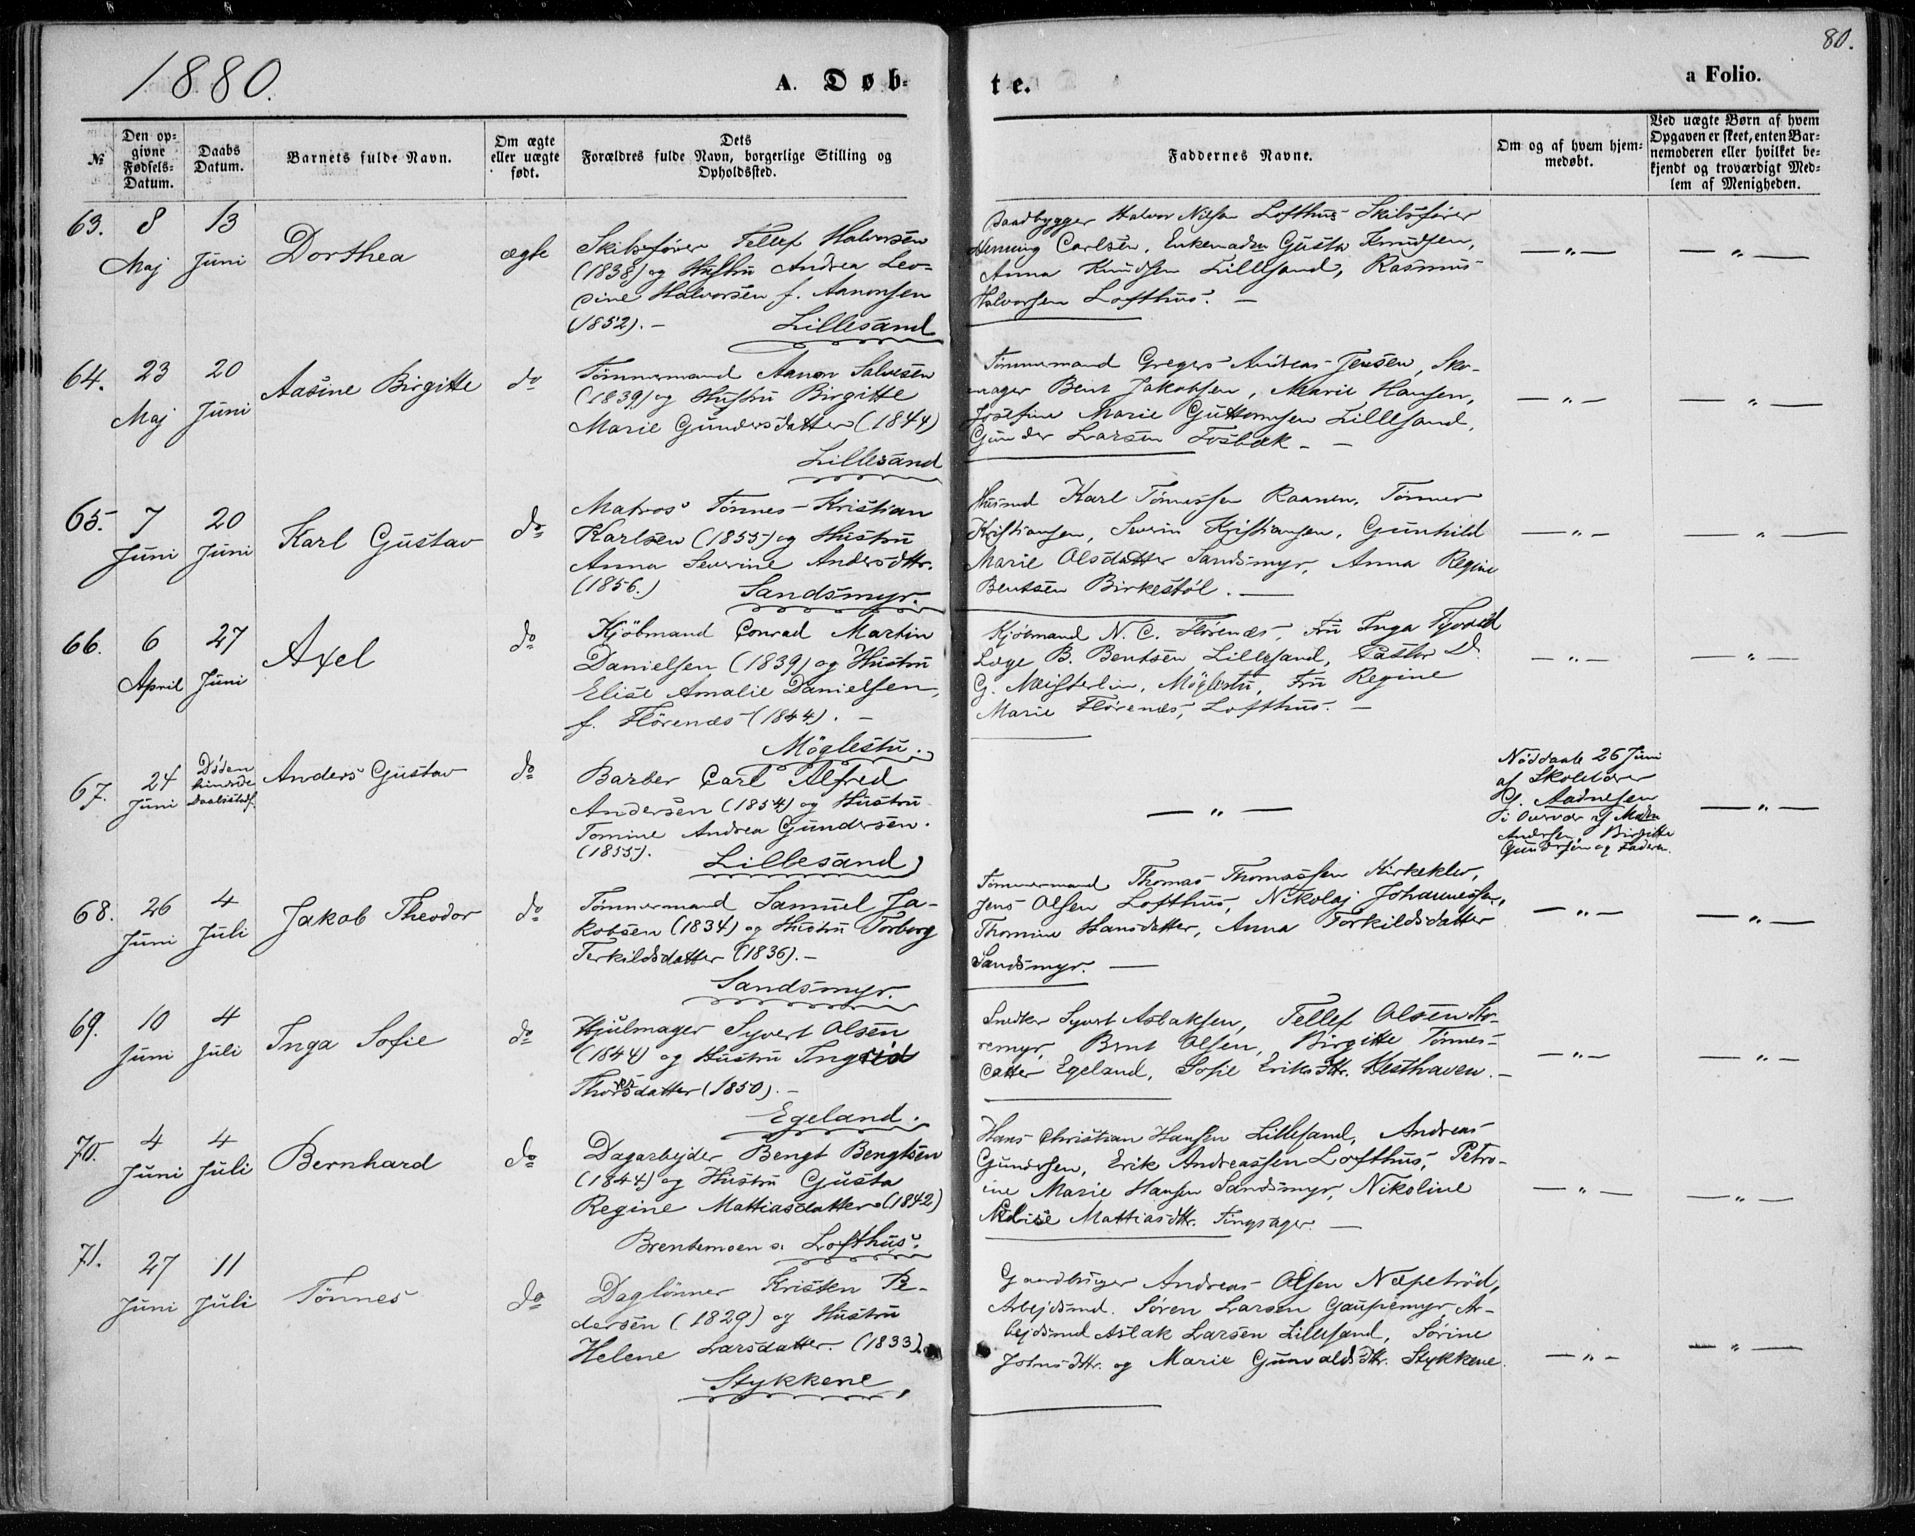 1880.
A. Døb-
te.
80.
a Folio.
№
Den op-
givne
Fødsels-
Datum.
Daabs
Datum.
Barnets fulde Navn.
Om ægte
eller uægte
født.
Dets
Forældres fulde Navn, borgerlige Stilling og
Opholdssted.
Faddernes Navne.
Om og af hvem hjem-
medøbt.
Ved uægte Børn af hvem
Opgaven er skeet, enten Bar-
nemoderen eller hvilket be-
kjendt og troværdigt Med-
lem af Menigheden.
63.
8
Maj
13
Juni
Dorthea
ægte
Skibsfører Tellef Halvorsen
(1838) og Hustru Andrea Leo-
sine Halvorsen f. Aanonsen
(1852). –
Lillesand
Baadbygger Halvor Nilsen Lofthus Skibsfører
Henning Carlsen, Enkemadm Gusta Knudsen,
Anna Knudsen Lillesand, Rasmus
Halvorsen Lofthus. –
— „ —
— „ —
64.
23
Maj
20
Juni
Aasine Birgitte
do
Tømmermand Aanon Salvesen
(1839) og Hustru Birgitte
Marie Gundersdatter (1844)
Lillesand
Tømmermand Gregers Andreas Jensen, Sko-
mager Bent Jakobsen, Marie Hansen,
Josefine Marie Guttormsen Lillesand,
Gunder Larsen Fosbæk –
— „ —
— „ —
65.
7
Juni
20
Juni
Karl Gustav
do
Matros Tønnes Kristian
Karlsen (1855) og Hustru
Anna Severine Andersdttr.
(1856.)
Sandsmyr.
Husmd Karl Tønnessen Raanen, Tønner
Kristiansen, Severin Kristiansen, Gunhild
Marie Olsdatter Sandsmyr, Anna Regine
Bentsen Birkestøl. —
— „ —
— „ —
66.
6
April
27
Juni
Axel
do
Kjøbmand Conrad Martin
Danielsen (1839) og Hustru
Elise Amalie Danielsen,
f. Flørenæs (1844). –
Møglestu.
Kjøbmand N. C. Flørenæs, Fru Inga
Læge B. Bentsen Lillesand, Pastor D.
G. Meisterlin, Møglestu, Fru Regine
Marie Flørenæs, Lofthus. –
— „ —
— „ —
67.
24
Juni
Døden
hindrede
Daabsstadf.
Anders Gustav
do
Barber Carl Alfred
Andersen (1854) og Hustru
Tomine Andrea Gundersen.
(1855).
Lillesand
— „ —
Nøddaab 26 Juni
af Skolelærer
G. Aadnesen
i Overvær af Madm
Andersen, Birgitte
Gundersen og Faderen.
— „ —
68.
26
Juni
4
Juli
Jakob Theodor
do
Tømmermand Samuel Ja-
kobsen (1834) og Hustru Torborg
Terkildsdatter (1836). –
Sandsmyr.
Tømmermand Thomas Thomassen Kirkeklev,
Jens Olsen Lofthus, Nikolaj Johannessen,
Thomine Hansdatter, Anna Torkildsdatter
Sandsmyr. —
— „ —
— „ —
69.
10
Juni
4
Juli
Inga Sofie
do
Hjulmager Syvert Olsen
(1844) og Hustru Ingrid
Thorsdatter (1850). –
Egeland.
Snedker Syvert Aslaksen, Tellef Olsen Sto-
remyr, Brnt Olsen, Birgitte Tønnes-
datter Egeland, Sofie Eriksdttr. Hesthaven. –
— „ —
— „ —
70.
4
Juni
4
Juli
Bernhard
do
Dagarbejder Bengt Bengtsen
(1844) og Hustru Gusta
Regine Mattiasdatter (1842)
Brentemoen s. Lofthus.
Hans Christian Hansen Lillesand, Andreas
Gundersen, Erik Andreassen Lofthus, Petro-
ine Marie Hansen Sandsmyr, Nikoline
Mattiasdttr. Tingsager —
— „ —
— „ —
71.
27
Juni
11
Juli
Tønnes
do
Daglønner Kristen Pe-
dersen (1829) og Hustru
Helene Larsdatter. (1833).
Stykkene
Gaardbruger Andreas Olsen Næpetrød,
Arbejdsmd. Søren Larsen Gaupemyr, Ar-
bejdsmd Aslak Larsen Lillesand, Sørine
Johnsdttr. og Marie Gunvaldsdttr. Stykkene.
— „ —
— „ —